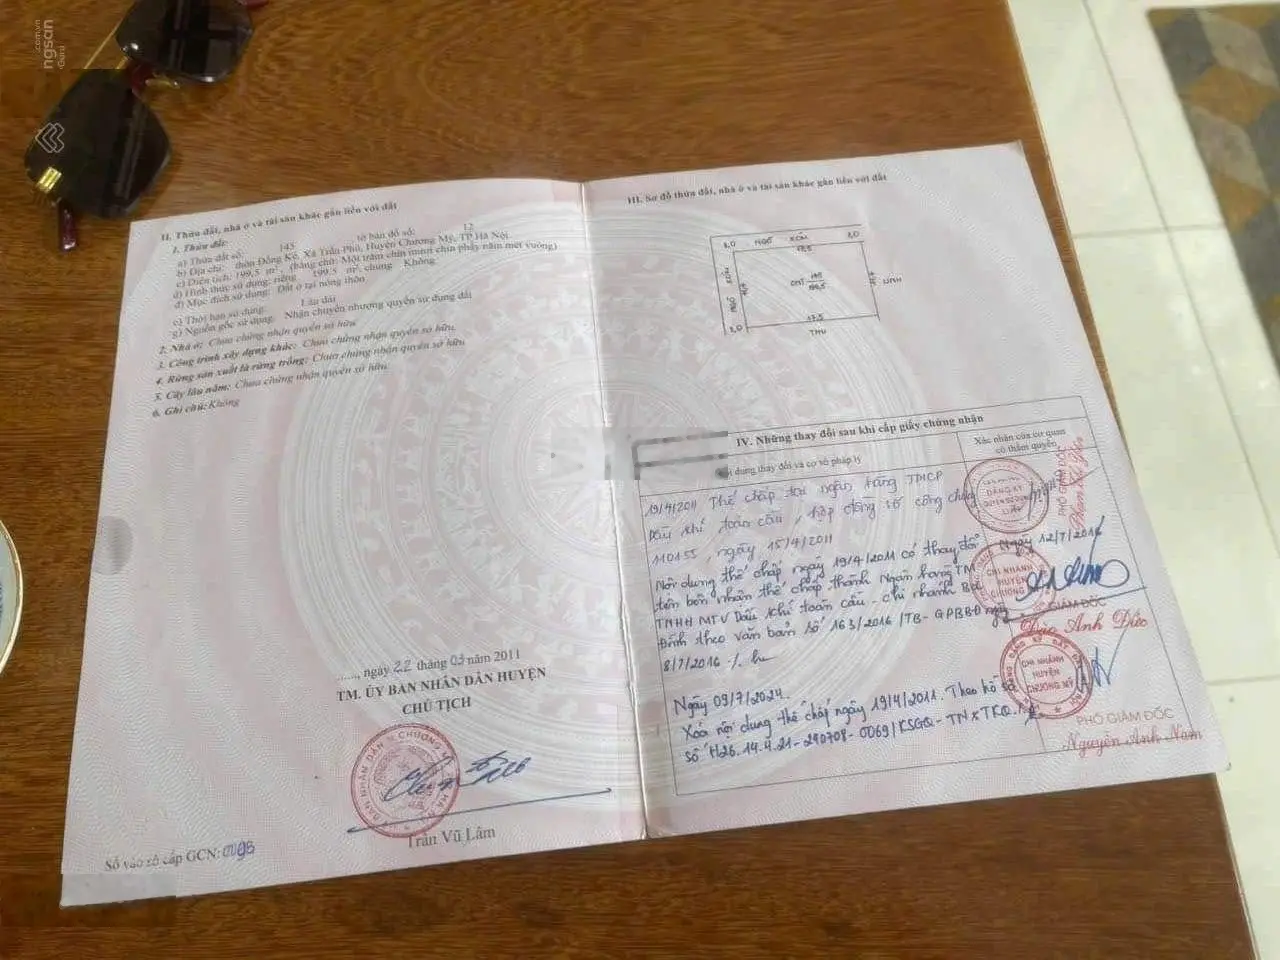 .com.vn
ngsan
Guru
II. Thửa đất, nhà ở và tài sản khác gắn liền với đất
1. Thửa đất:
a) Thửa đất số: 145 tờ bản đồ số: 12
b) Địa chỉ: thôn Đồng Kẻ, Xã Trần Phú, Huyện Chương Mỹ, TP Hà Nội
c) Diện tích: 199,5 m², (bằng chữ: Một trăm chín mươi chín phẩy năm mét vuông)
d) Hình thức sử dụng: riêng 199,5 m², chung Không
đ) Mục đích sử dụng: Đất ở tại nông thôn
e) Thời hạn sử dụng: Lâu dài
g) Nguồn gốc sử dụng: Nhận chuyển nhượng quyền sử dụng đất
2. Nhà ở: Chưa chứng nhận quyền sở hữu
3. Công trình xây dựng khác: Chưa chứng nhận quyền sở hữu
4. Rừng sản xuất là rừng trồng: Chưa chứng nhận quyền sở hữu
5. Cây lâu năm: Chưa chứng nhận quyền sở hữu
6. Ghi chú: Không
....., ngày 22 tháng 03 năm 2011
TM. ỦY BAN NHÂN DÂN HUYỆN
CHỦ TỊCH
Trần Vũ Lâm
Số vào sổ cấp GCN:
III. Sơ đồ thửa đất, nhà ở và tài sản khác gắn liền với đất
2,0 NGÕ XÓM 2,0
NGÕ XÓM
ONT 145
199,5
17,5
2,0
THU
IV. Những thay đổi sau khi cấp giấy chứng nhận
dung thay đổi và cơ sở pháp lý
Xác nhận của cơ quan
có thẩm quyền
19/4/2011 Thế chấp tại ngân hàng TMCP
Dầu khí toàn cầu, hợp đồng số công chứng
110155, ngày 15/4/2011
Nội dung thế chấp ngày 19/4/2011 có thay đổi
tên bên nhận thế chấp thành Ngân hàng TM
TNHH MTV Dầu khí toàn cầu - chi nhánh Ba
Đình theo văn bản số 163/2016/TB-GPBĐ ngày
8/7/2016
Ngày 12/7/2016
CHI NHÁNH
HUYỆN
GIÁM ĐỐC
Đào Anh Đức
Ngày 09/7/2024.
Xóa nội dung thế chấp ngày 19/4/2011. Theo hồ sơ
số H26.14.4.21-290708-0069/KSGQ-TNxTKQ
CHI NHÁNH
HUYỆN
CHƯƠNG MỸ
PHÓ GIÁM ĐỐC
Nguyễn Anh Nam